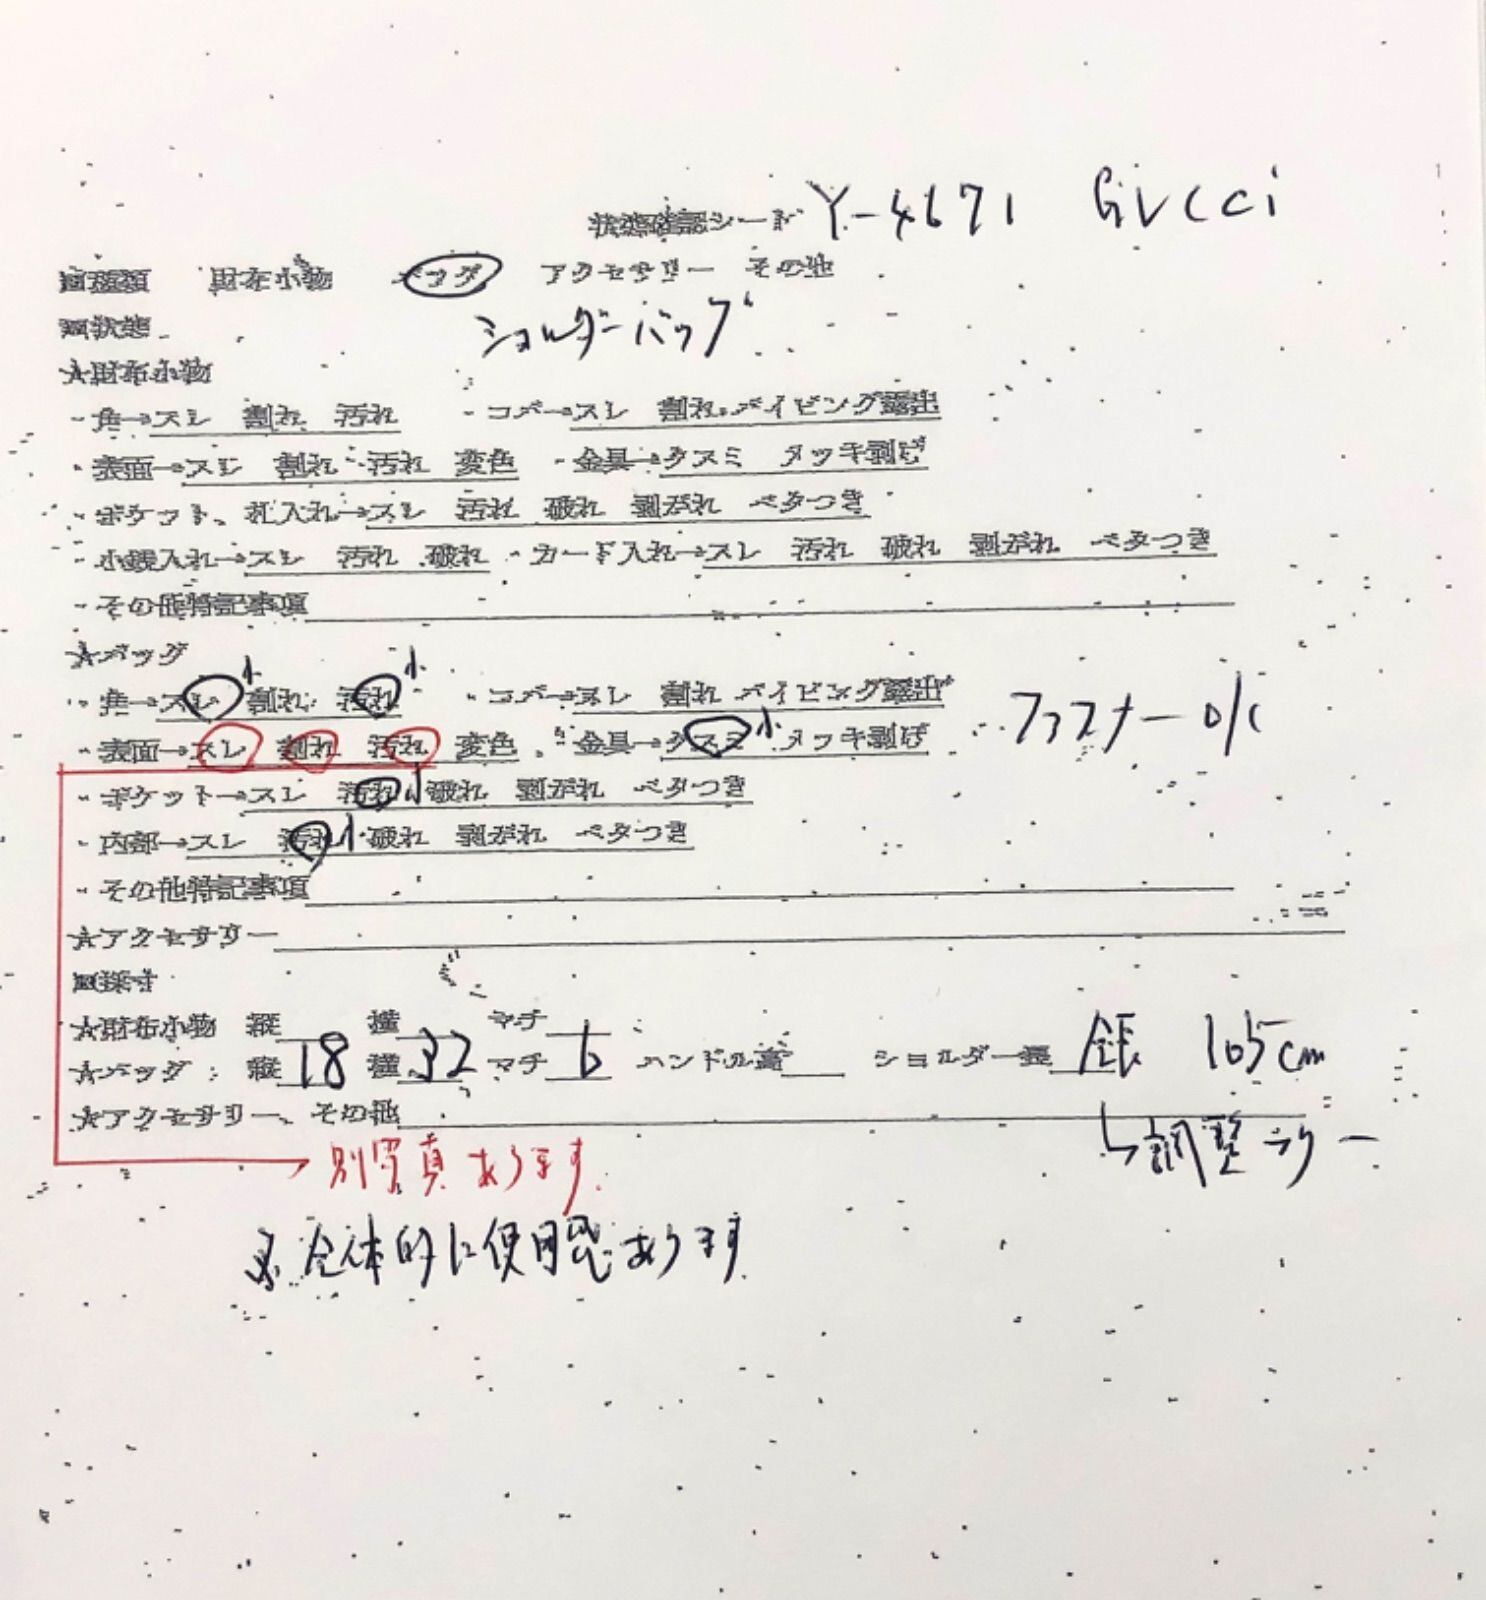 状態確認シート Y-4671 GUCCI
■種類 財布小物 バッグ アクセサリー その他
■状態 ショルダーバッグ
★財布小物
・角→スレ 割れ 汚れ ・コバ→スレ 割れ パイピング露出
・表面→スレ 割れ 汚れ 変色 ・金具→クスミ メッキ剥げ
・ポケット、札入れ→スレ 汚れ 破れ 剥がれ ベタつき
・小銭入れ→スレ 汚れ 破れ ・カード入れ→スレ 汚れ 破れ 剥がれ ベタつき
・その他特記事項
★バッグ
・角→スレ小 割れ 汚れ小 ・コバ→スレ 割れ パイピング露出
・表面→スレ 割れ 汚れ 変色 ・金具→クスミ小 メッキ剥げ ファスナーO/C
・ポケット→スレ 汚れ小 破れ 剥がれ ベタつき
・内部→スレ 汚れ小 破れ 剥がれ ベタつき
・その他特記事項
★アクセサリー
■採寸
★財布小物 縦 横 マチ
★バッグ 縦 18 横 32 マチ 6 ハンドル高 ショルダー長 全長 105cm
★アクセサリー、その他
→調整シロー
→別写真あります。
※全体的に使用感あります